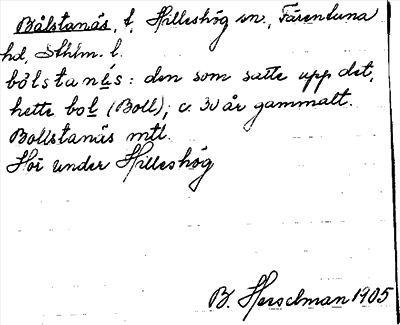 Bålstanäs, t, Hilleshög sn., Färentuna
hd, Sthlm. l.
bólstanés: den som satte upp det,
hette bol (Boll); c. 30 år gammalt.
Bollstanäs mtl.
Hör under Hilleshög
B. Hesselman 1905